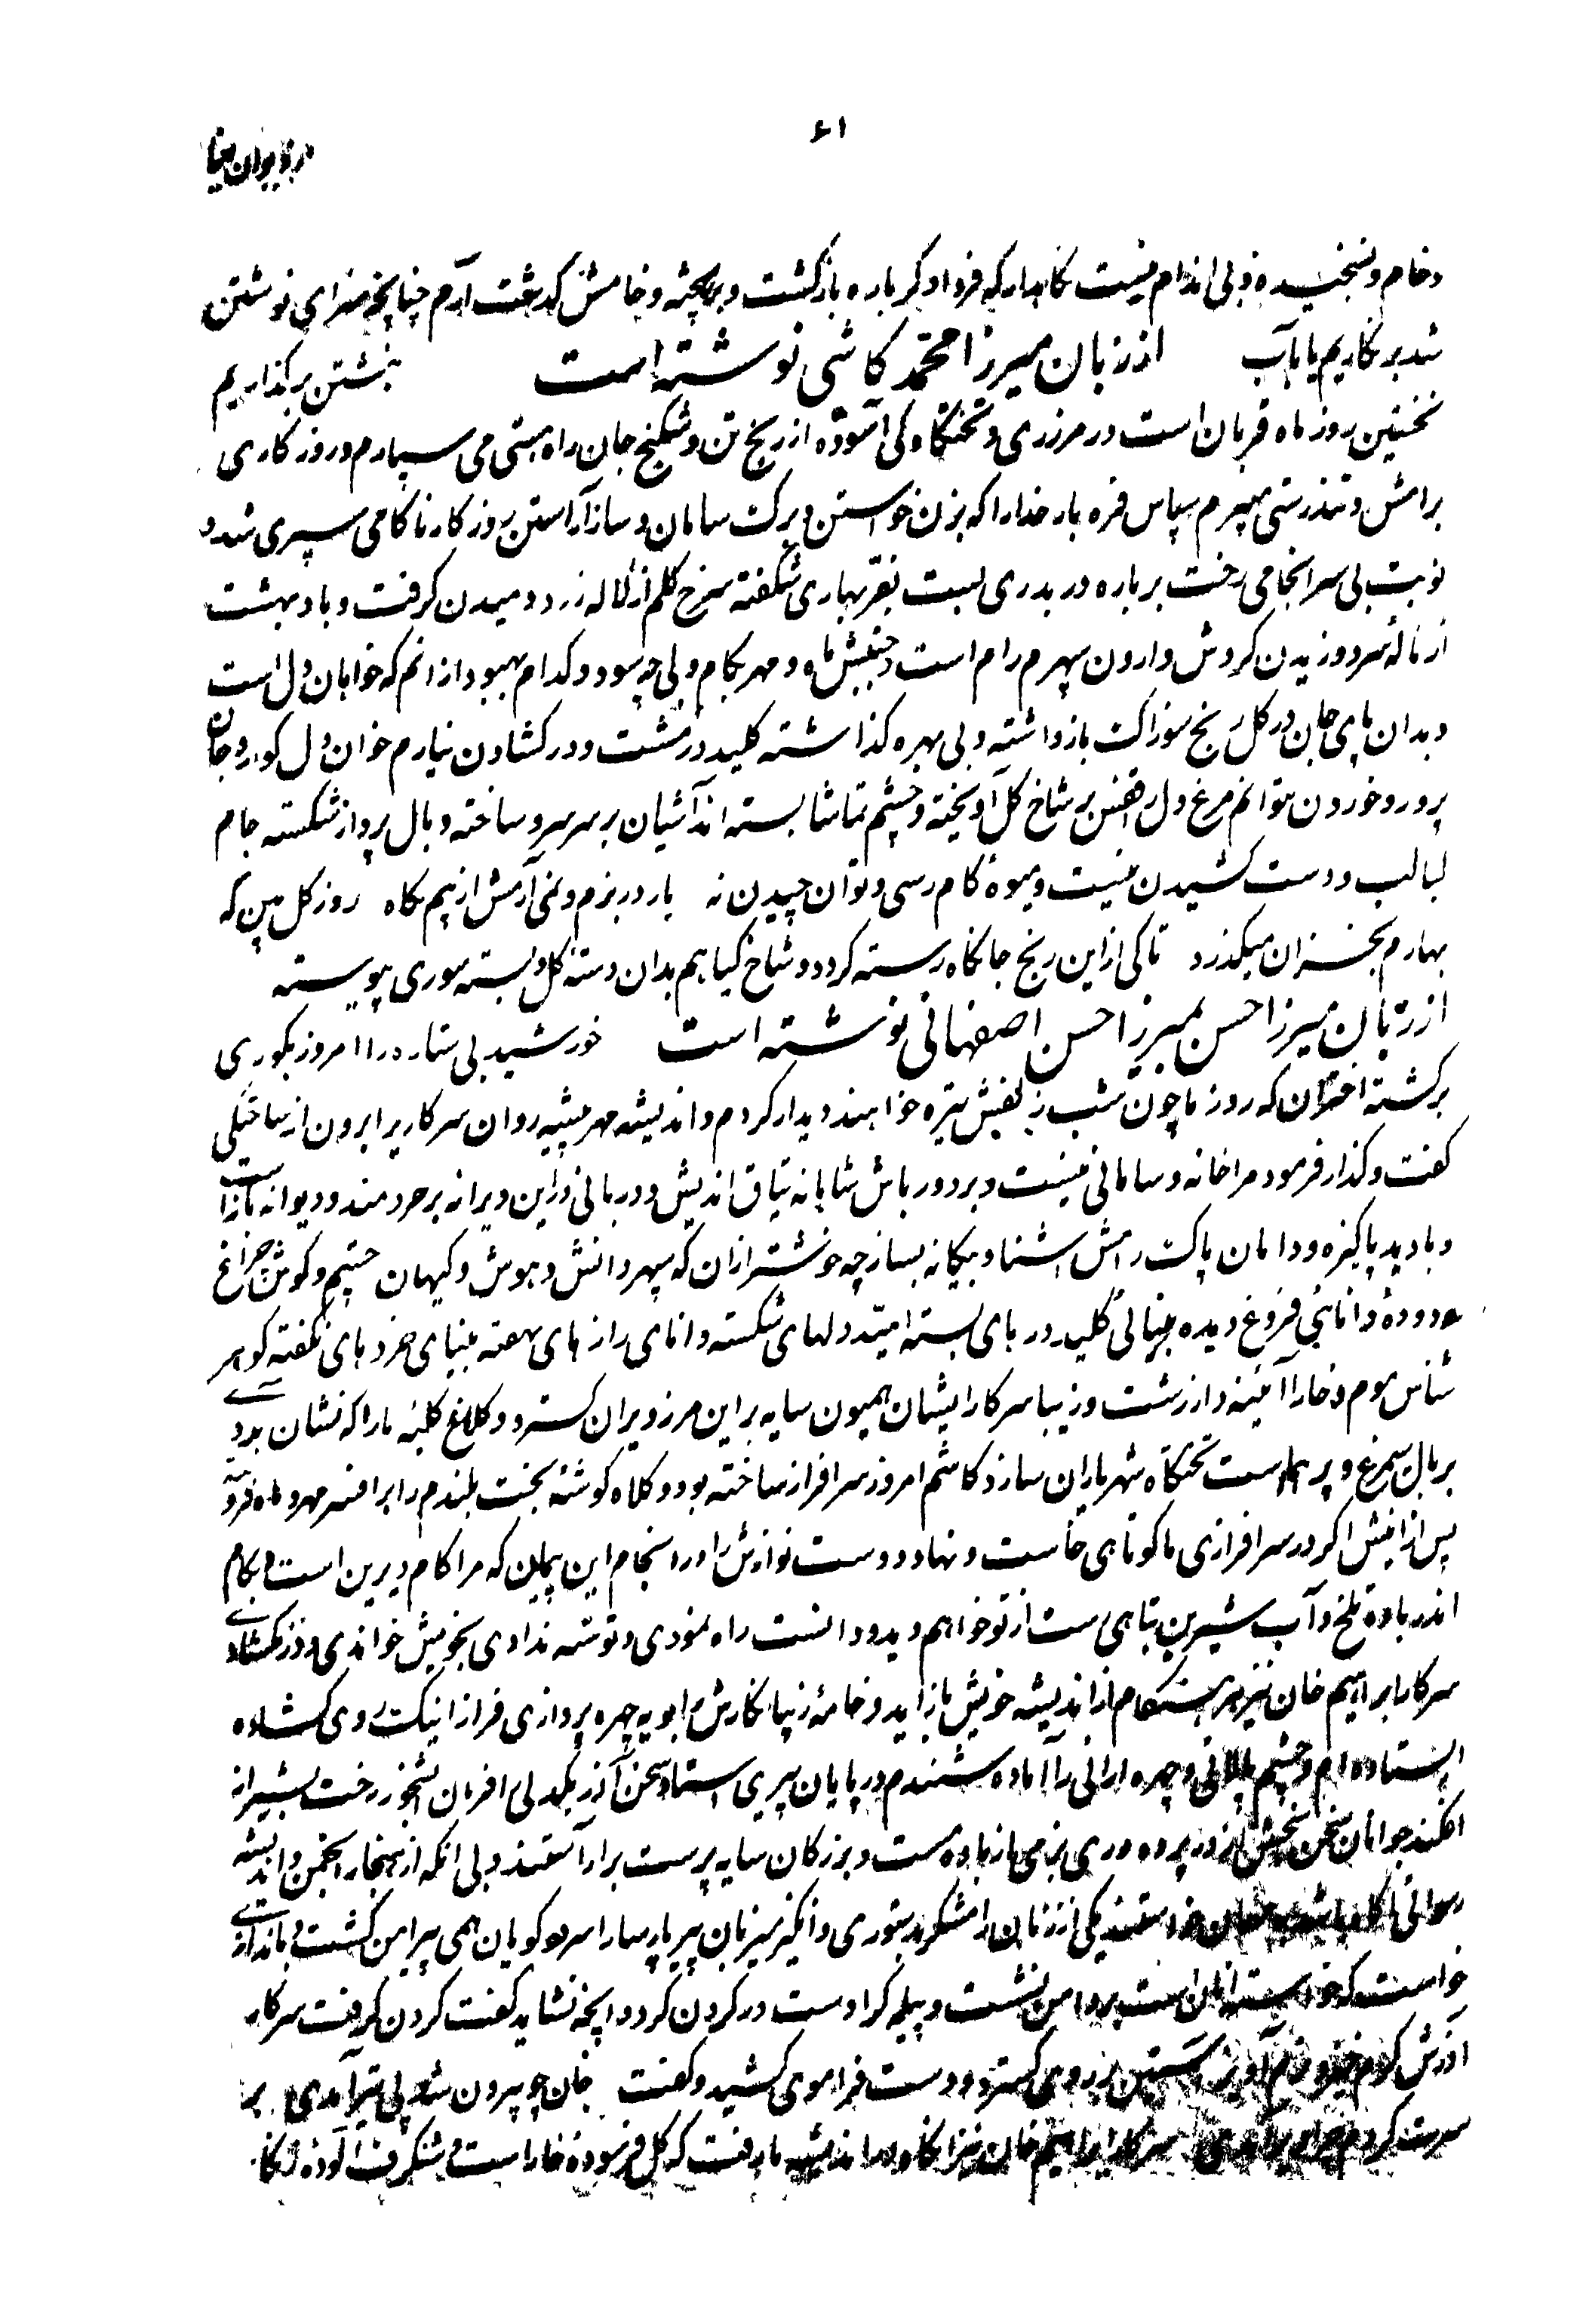 ۶۱
وخام و نسنجیده و بی اندام نیست نگاهدار که فردا دگر باره بازگشت و بر پخته و خامش گذشت آرم چنانچه سزای نوشتن
شد بر نگاریم یا بآب از زبان میرزا محمد کاشی نوشته است نبشتن برگذاریم
نخستین روز ماه قربان است در مرز ری و تختگاه کی آسوده از رنج تن و شکنج جان راه هستی می سپارم و روزگاری
برامش و تندرستی میبرم سپاس فره بار خدا را که بزن خواستن و برگ سامان و ساز آراستن روزگار ناکامی سپری شد و
نوبت بی سرانجامی رخت بر باره در بدری بست بفر بهاری شکفته سرخ گلم از لاله زرد دمیدن گرفت و باد بهشت
از ناله سرد وزیدن گردش وارون سپهرم رام است و جنبش ماه و مهر بکام ولی چه سود و کدام بهبود از انم که خواهان دل است
و بدان پای جان در گل رنج سوزاک باز داشته و بی بهره گذاشته کلید در مشت و در گشادن نیارم خوان دل گوار و جان
پرور و خوردن نتوانم مرغ دل را قفس بر شاخ گل آویخته و چشم تماشا بسته اند آشیان بر سر سرو ساخته و بال پرواز شکسته جام
لبالب و دست کشیدن نیست و میوه کام رسی و توان چیدن نه یار در بزم و نمی آرمش از بیم نگاه روز گل بین که
بهارم بخزان میگذرد تا کی از این رنج جانکاه رسته گردد و شاخ گیاهم بدان دسته گل و بسته سوری پیوسته
از زبان میرزا حسن بمیرزا حسن اصفهانی نوشته است خورشید بی ستاره را امروز بکوری
برگشته اختران که روز ما چون شب زلفش تیره خواهند دیدار کردم و اندیشه مهر پیشه روان سرکار برابرون از ساختگی
گفت و گذار فرمود مرا خانه و سامانی نیست و بر دور باش شاهانه یتاق اندیش و دربانی در این ویرانه بر خردمند و دیوانه باز است
و با دید پاکیزه و دامان پاک رامش آشنا و بیگانه بساز چه خوشتر از ان که سپهر دانش و هوش و کیهان چشم و گوش چراغ
دوده دانایی فروغ دیده بینائی کلید در های بسته امید دلهای شکسته دانای راز های نهفته بینای خرد های نگفته گوهر
شناس موم و خارا آئینه دار زشت و زیبا سرکار ایشان همیون سایه بر این مرز ویران گسترد و کلاغ کلبه ما را که نشان بدی
بر بال سیمرغ و پر هماست تختگاه شهریاران سازد کاشم امروز سرافراز ساخته بود و کلاه گوشه بخت بلندم را بر افسر مهر و ماه
پس از اینش اگر در سرافرازی ما کوتاهی خاست و نهاد دوست نوازش را در انجام این پیمان که مرا کام دیرین است و بکام
اندر باده تلخ و آب شیرین تباهی رست از تو خواهم دید و دانست راه نمودی و توشه ندادی بخویش خواندی و در نگشادی
سرکار ابراهیم خان نیز هنگام از اندیشه خویش باز اید و خامه زیبا نگارش را بویه چهره پردازی فراز اینک روی گشاده
ایستاده ام و چشم پالانی و چهره ارائی را آماده شنندم در پایان پیری استاد سخن آذر بکدلی افرمان شخوز رخت بشیراز
افکند جوانان سخن سخنش از در پرده دری بزمی از باده مست و بزرگان سایه پرست برآراستند و بی انکه از هنجار انجمن و اندیشه
رسوائی آگاه باشد خواستند یکی از زنان رامشگر بدستوری و انگیز میزبان پیر پارسا را سرود گویان همی پیرامن گشت و باندازی
خواست که خواسته انان است بر دامن نشست و پیله گرا دست در گردن کرد و انچه نشاید گفت کردن گرفت سرکار
آذرش گرم آستین بر روی گسترد و دست فرا موی کشید و گفت جان چو بیرون شد پی تیر آمدی بر
سرت گردم چرا دیر آمدی سرکار ابراهیم خان نیز انگاه اندیشه ما رفت که گل فرسوده خار است و شنگرف آلوده